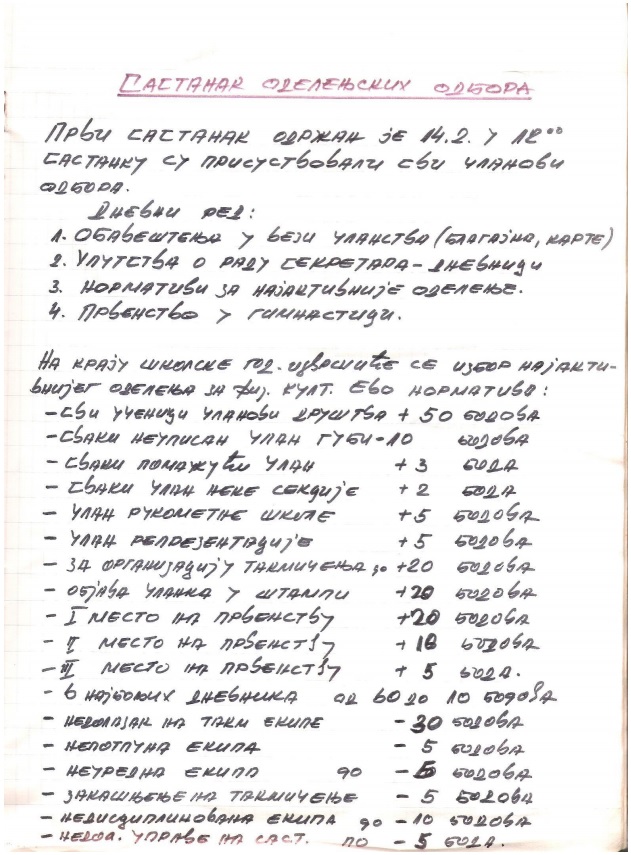 САСТАНАК ОДЕЛЕЊСКИХ ОДБОРА
ПРВИ САСТАНАК ОДРЖАН ЈЕ 14.2. У 18⁰⁰
САСТАНКУ СУ ПРИСУСТВОВАЛИ СВИ ЧЛАНОВИ
ОДБОРА.
ДНЕВНИ РЕД:
1. ОБАВЕШТЕЊА У ВЕЗИ ЧЛАНСТВА (БЛАГАЈНА, КАРТЕ)
2. УПУТСТВА О РАДУ СЕКРЕТАРА - ДНЕВНИЦИ
3. НОРМАТИВИ ЗА НАЈАКТИВНИЈЕ ОДЕЛЕЊЕ.
4. ПРВЕНСТВО У ГИМНАСТИЦИ.
НА КРАЈУ ШКОЛСКЕ ГОД. ИЗВРШИЋЕ СЕ ИЗБОР НАЈАКТИ-
ВНИЈЕГ ОДЕЛЕЊА ЗА ФИЗ. КУЛТ. ЕВО НОРМАТИВА:
- СВИ УЧЕНИЦИ ЧЛАНОВИ ДРУШТВА + 50 БОДОВА
- СВАКИ НЕУПИСАН ЧЛАН ГУБИ - 10 БОДОВА
- СВАКИ ПОМАЖУЋИ ЧЛАН + 3 БОДА
- СВАКИ ЧЛАН НЕКЕ СЕКЦИЈЕ + 2 БОДА
- ЧЛАН РУКОМЕТНЕ ШКОЛЕ + 5 БОДОВА
- ЧЛАН РЕПРЕЗЕНТАЦИЈЕ + 5 БОДОВА
- ЗА ОРГАНИЗАЦИЈУ ТАКМИЧЕЊА ДО +20 БОДОВА
- ОБЈАВА ЧЛАНКА У ШТАМПИ +20 БОДОВА
- I МЕСТО НА ПРВЕНСТВУ +20 БОДОВА
- II МЕСТО НА ПРВЕНСТВУ + 10 БОДОВА
- III МЕСТО НА ПРВЕНСТВУ + 5 БОДА.
- 6 НАЈБОЉИХ ДНЕВНИКА ОД 60 ДО 10 БОДОВА
- НЕДОЛАЗАК НА ТАКМ ЕКИПЕ - 30 БОДОВА
- НЕПОТПУНА ЕКИПА - 5 БОДОВА
- НЕУРЕДНА ЕКИПА ДО - 5 БОДОВА
- ЗАКАШЊЕЊЕ НА ТАКМИЧЕЊЕ - 5 БОДОВА
- НЕДИСЦИПЛИНОВАНА ЕКИПА ДО - 10 БОДОВА
- НЕДОЛ. УПРАВЕ НА САСТ. ПО - 5 БОДА.